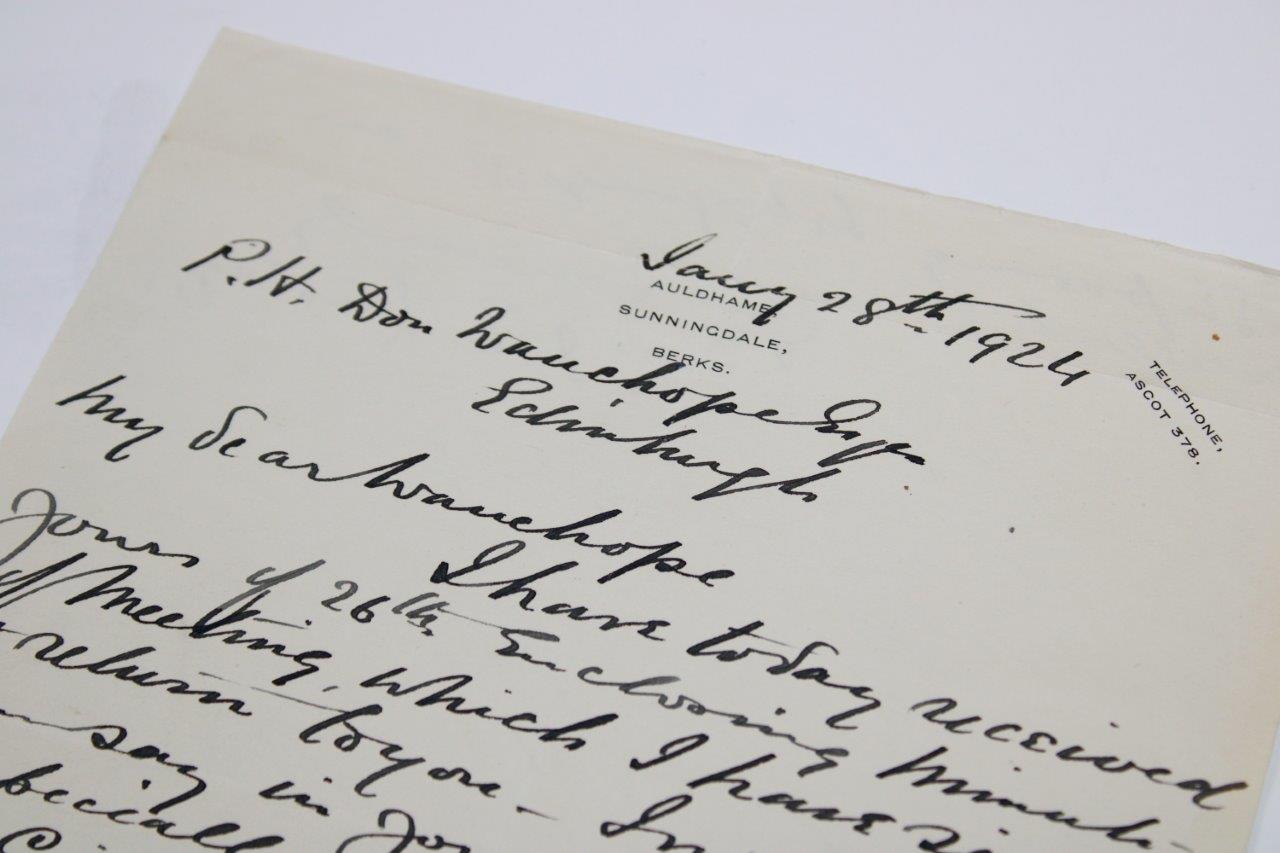 Jany 28th 1924
AULDHAME,
SUNNINGDALE,
BERKS.
TELEPHONE,
ASCOT 378.
P.H. Don Wauchope Esqr
Edinburgh
My dear Wauchope
I have today received
Yours of 26th Enclosing Minute
of Meeting, which I have
return to you - In
say in You